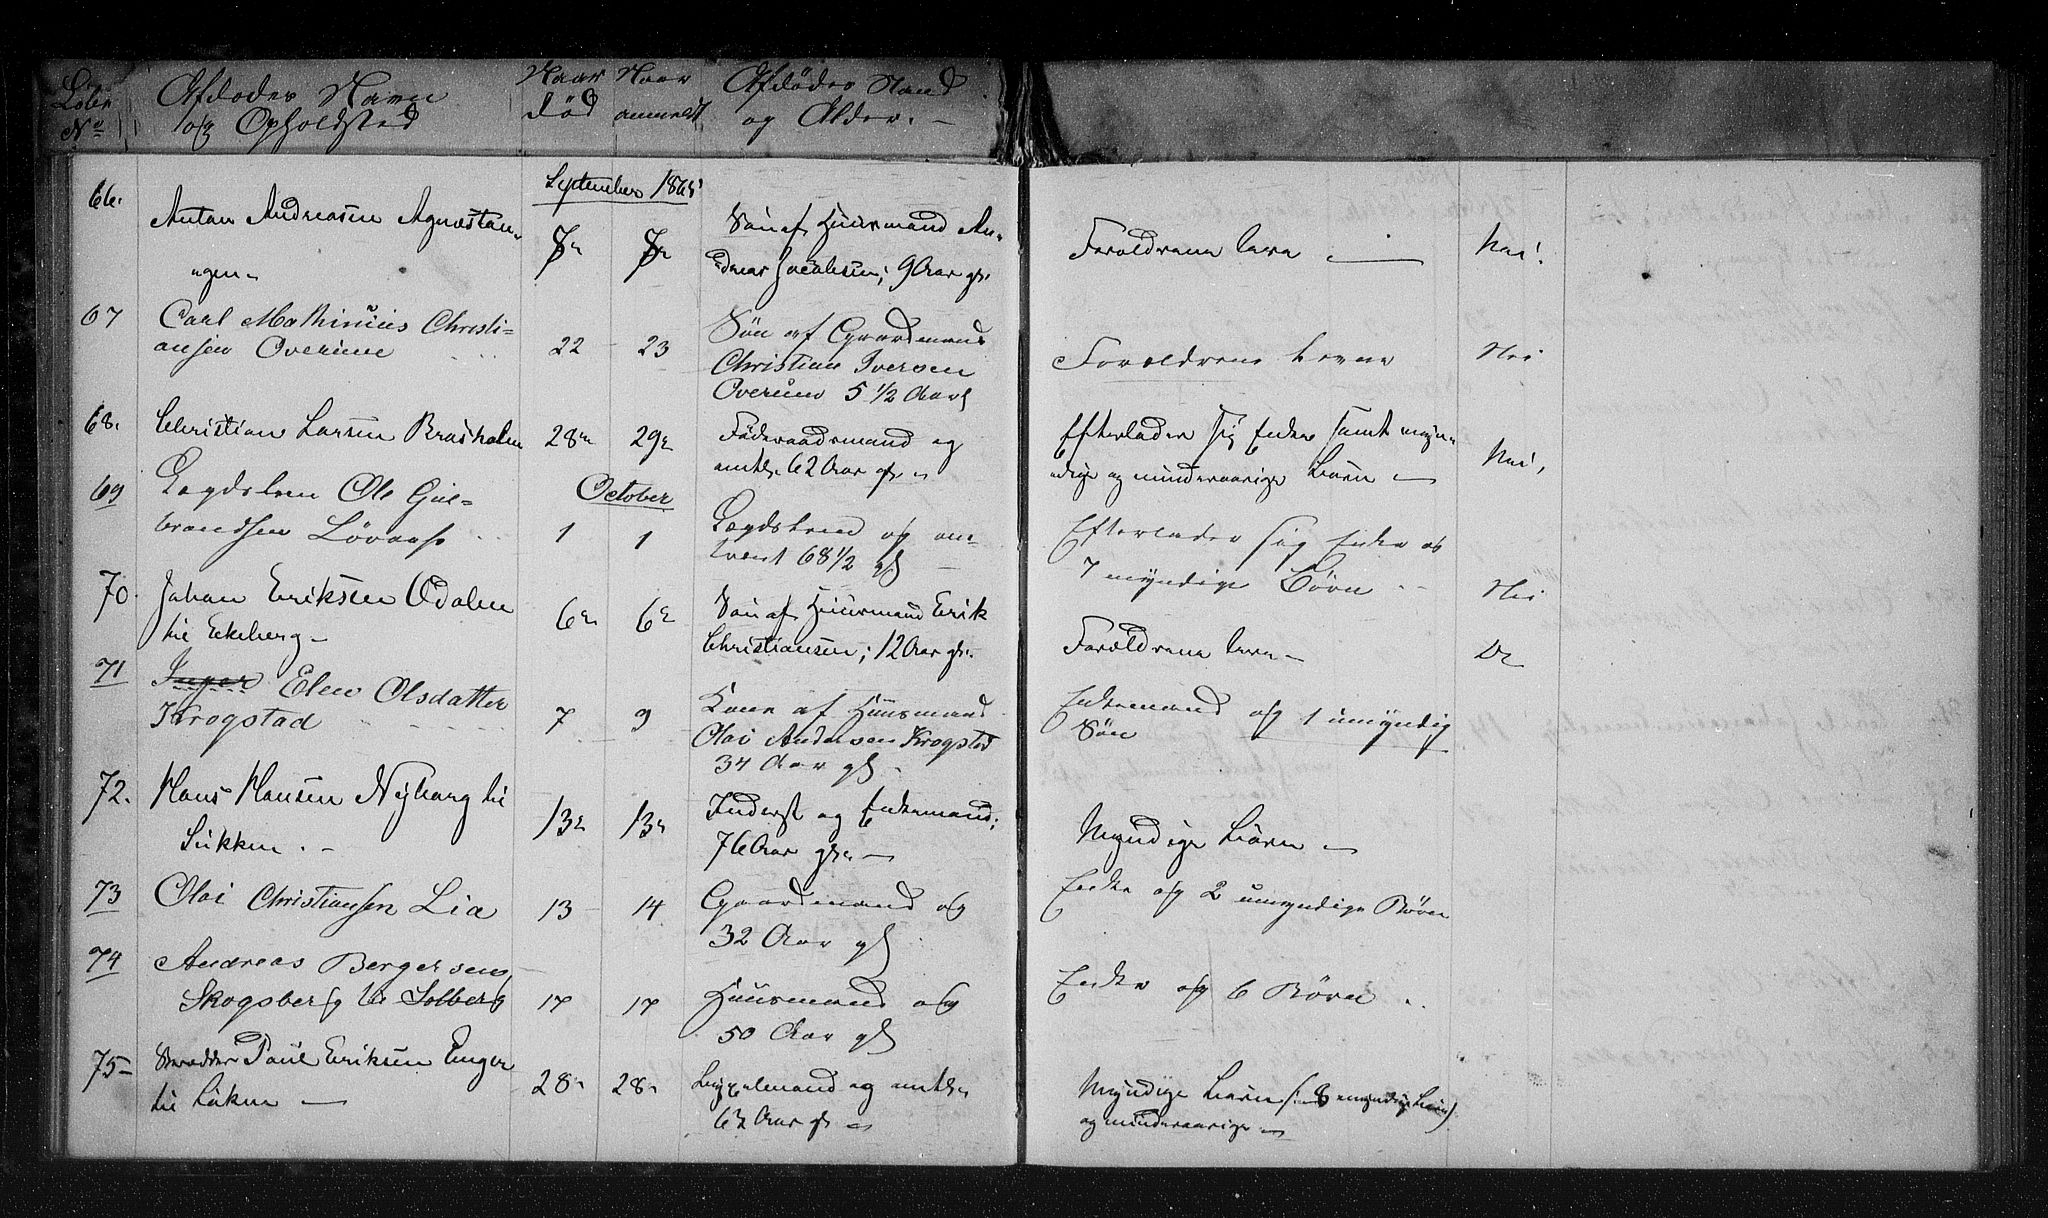 Løbe
No
Afdødes Navn
og Opholdsted
Naar
død
Naar
anmeldt
Afdødes Stand
og Alder. —
September 1868
66.
Anton Andreasen Agnæstan-
gen
7de
7de
Søn af Huusmand An-
dreas Jacobsen; 9 Aar gl.
Forældrene leve —
Nei!
67
Carl Mathinius Christi-
ansen Overune
22
23
Søn af Gaardmand
Christian Iversen
Overune 5 1/2 Aar gl
Forældrene leve
Nei
68.
Christian Larsen Brasholm
28de
29de
Føderaadsmand og
omtr. 62 Aar gl.
Efterlader sig Enke samt myn-
dige og mindreaarige Børn —
Nei,
October
69
Lægdslem Ole Gul-
brandsen Løvaas
1
1
Lægdslem og om-
trent 68 1/2 gl
Efterlader sig Enke og
7 myndige Børn
Nei
70.
Johan Eriksen Odalen
til Ekeberg
6te
6te
Søn af Huusmand Erik
Christiansen; 12 Aar gl.
Forældrene leve —
Do
71
Inger Elen Olsdatter
Krogstad
7
9
Kone af Huusmand
Olai Andersen Krogstad
34 Aar gl
Enkemand og 1 umyndig
Søn
72.
Hans Hansen Nyborg til
13de
13de
Inderst og Enkemand;
76 Aar gl. —
Myndige Børn —
73
Olai Christiansen Lia
13
14
Gaardmand og
32 Aar gl
Enke og 2 umyndige Børn
74
Andreas Bergersen,
Skogsberg til Solberg
17
17
Huusmand og
50 Aar gl
Enke og 6 Børn
75
Skrædder Paul Eriksen Enger
til Løken —
28de
28de
og omtr.
63 Aar gl.
Myndige Børn (: 8 myndige Børn)
og mindreaarige —